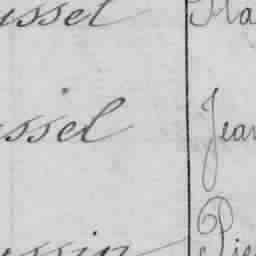 ussel Ma
ussel Jean
ussin Pie